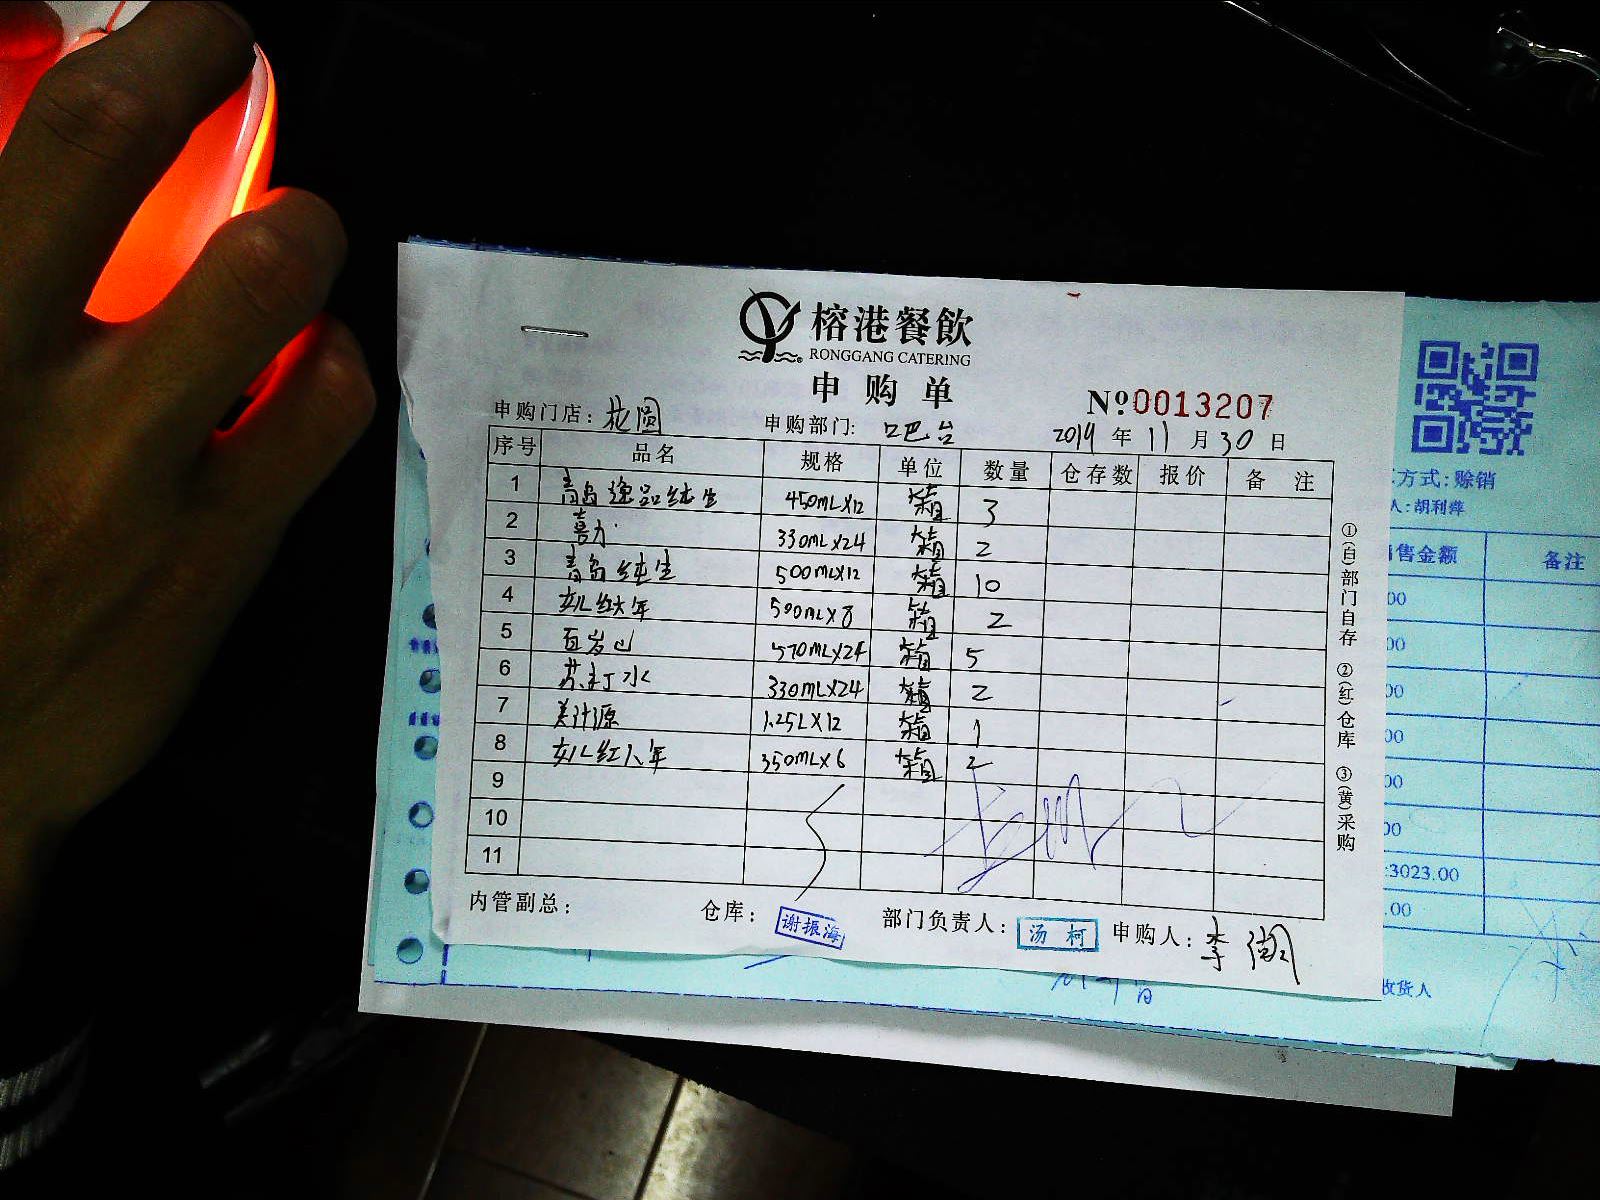 榕港餐飲
RONGGANG CATERING
申购单
№0013207
申购门店: 花圆 申购部门: 口巴台 2019年11月30日
序号 品名 规格 单位 数量 仓存数 报价 备注
1 青岛逸品纯生 450mL×12 箱 3
2 喜力 330mL×24 箱 2
3 青岛纯生 500mL×12 箱 10
4 女儿红六年 500mL×8 箱 2
5 百岁山 570mL×24 箱 5
6 苏打水 330mL×24 箱 2
7 美汁源 1.25L×12 箱 1
8 女儿红八年 350mL×6 箱 2
9
10
11
内管副总: 仓库: 谢振海 部门负责人: 汤柯 申购人: 李湖
①(白)部门自存 ②(红)仓库 ③(黄)采购
方式:赊销
人:胡利萍
售金额 备注
00
00
00
00
00
00
:3023.00
.00
收货人